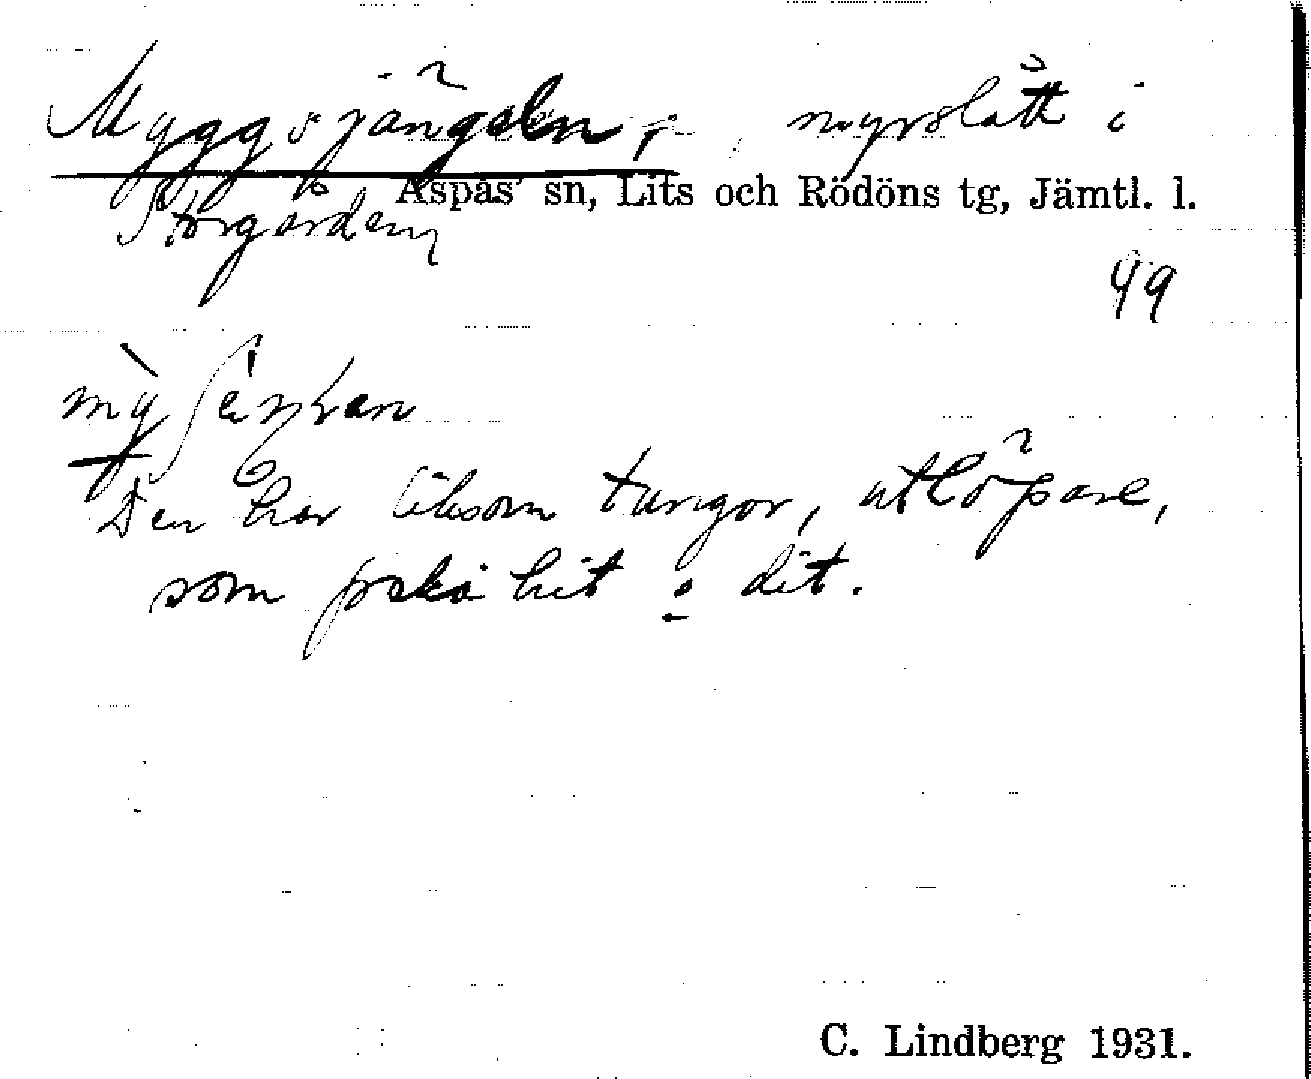 Myggsjängeln, myrslått i
Aspås sn, Lits och Rödöns tg, Jämtl. l.
Storgården
99
Den har liksom tungor, utlöpare,
som peka hit o dit.
C. Lindberg 1931.